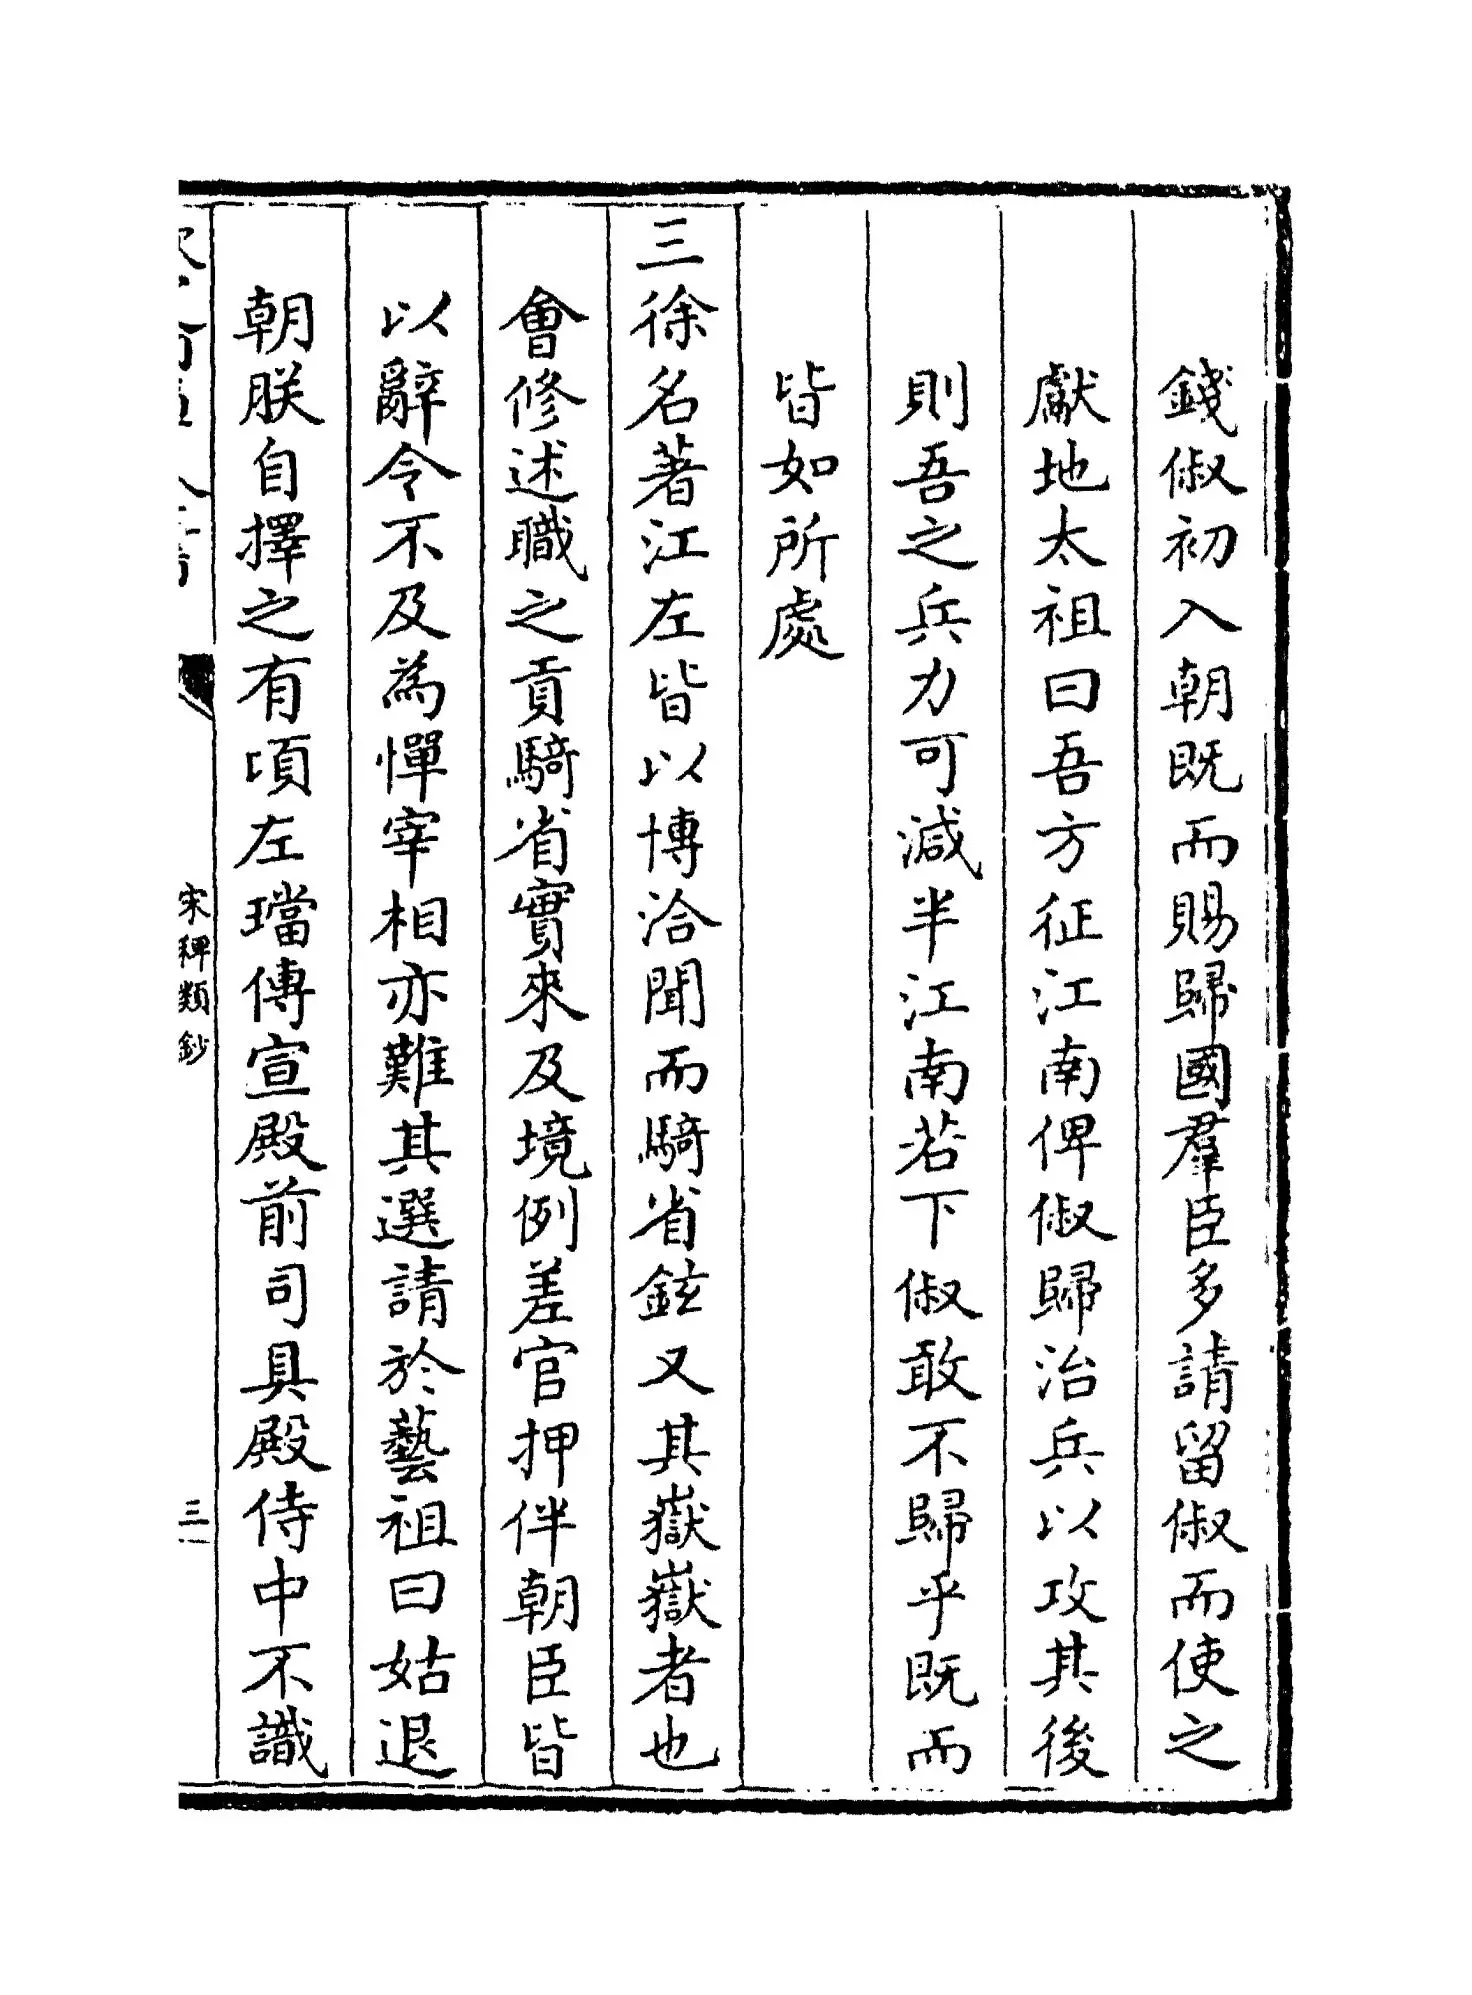 錢俶初入朝既而賜歸國羣臣多請留俶而使之
獻地太祖曰吾方征江南俾俶歸治兵以攻其後
則吾之兵力可減半江南若下俶敢不歸乎既而
皆如所處
三徐名著江左皆以博洽聞而騎省鉉又其嶽嶽者也
會修述職之貢騎省實來及境例差官押伴朝臣皆
以辭令不及為憚宰相亦難其選請於藝祖曰姑退
朝朕自擇之有頃左璫傳宣殿前司具殿侍中不識
宋稗類鈔
三